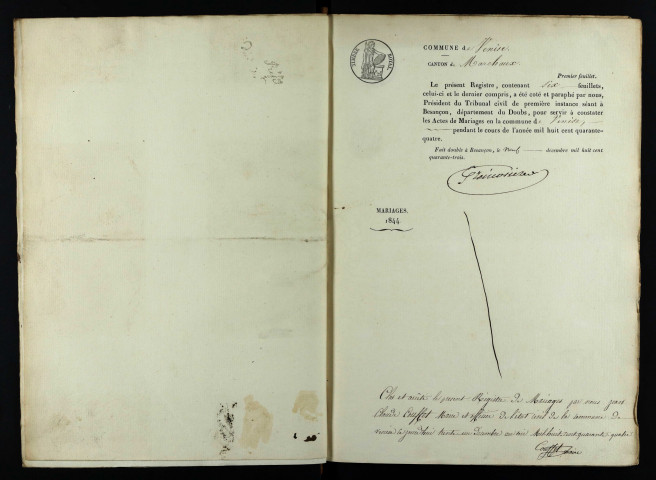 TIMBRE ROYAL
COMMUNE de Venise
CANTON de Marchaux.
Premier feuillet.
Le présent Registre, contenant six feuillets,
celui-ci et le dernier compris, a été coté et paraphé par nous,
Président du Tribunal civil de première instance séant à
Besançon, département du Doubs, pour servir à constater
les Actes de Mariages en la commune de Venise,
pendant le cours de l'année mil huit cent quarante-
quatre.
Fait double à Besançon, le décembre mil huit cent
quarante-trois.
MARIAGES.
1844
Clos et arrêté le présent Régistre de Mariages par nous jean
Claude Couffet Maire et officier de l'état civil de la commune de
venise aujourdhui trente-un Décembre an mil huit cent quarante quatre
Couffet maire